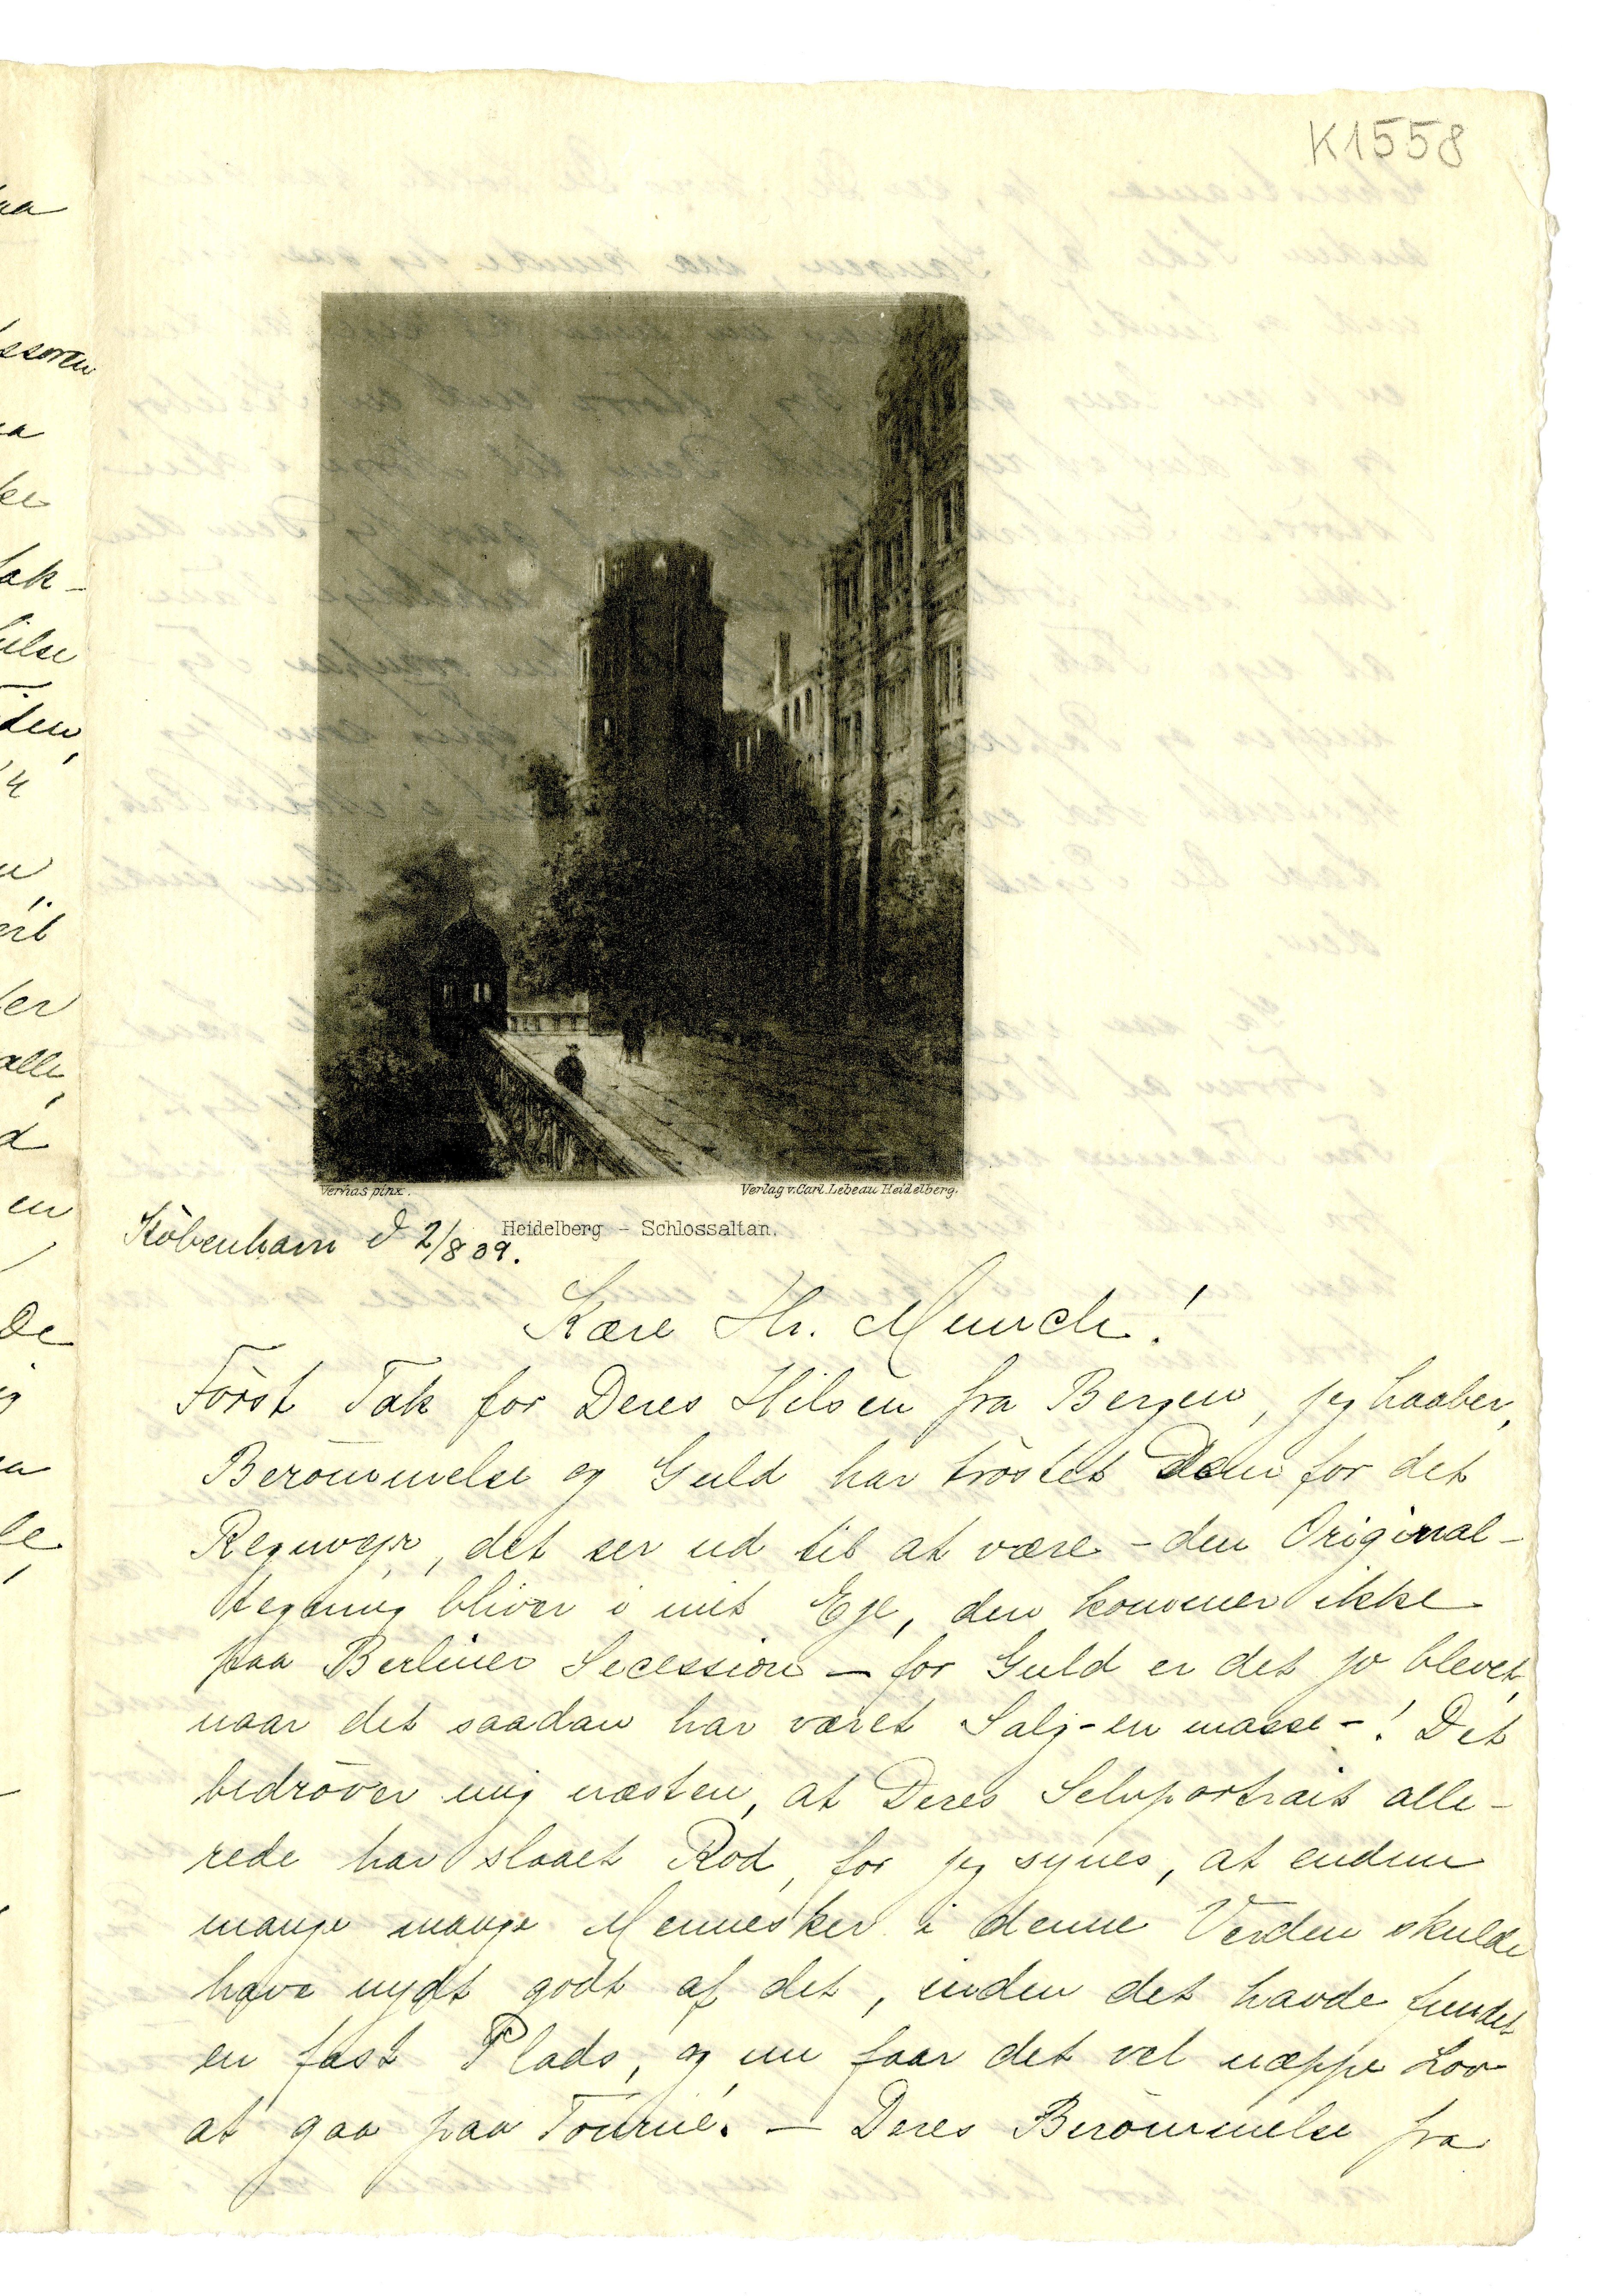 K1558
Vernas pinx.
Verlag v. Carl Lebeau Heidelberg.
Heidelberg - Schlossaltan.
Köbenhavn d 2/8 09.
Kære Hr. Munch!
Först Tak for Deres Hilsen fra Bergen, jeg haaber,
Berömmelse og Guld har tröstet Dem for det
Regnvejr, det ser ud til at være - den Original-
tegning bliver i mit Eje, den kommer ikke
paa Berliner Secession — for Guld er det jo blevet,
naar det saadan har været Salg - en masse - ! Det
bedröver mig næsten, at Deres Selvportrait alle-
rede har slaaet Rod, for jeg synes, at endnu
mange mange Mennesker i denne Verden skulde
have nydt godt af det, inden det havde fundet
en fast Plads, og nu faar det vel næppe Lov
at gaa paa Tourné. — Deres Berömmelse fra
aa
ssoren
ke
Tak-
den,
er
alle,
en
De